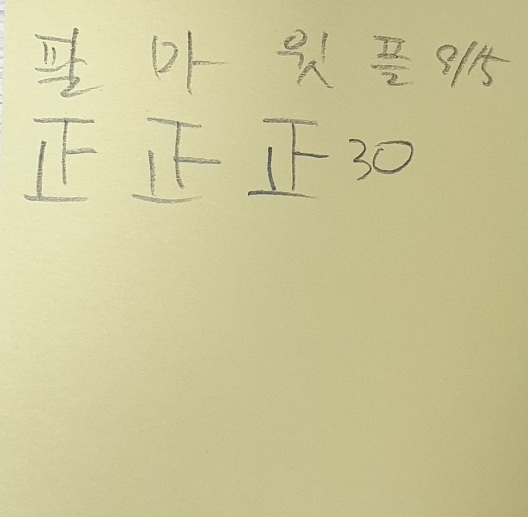 팔 마 윗 플 8/15
正 正 正 30